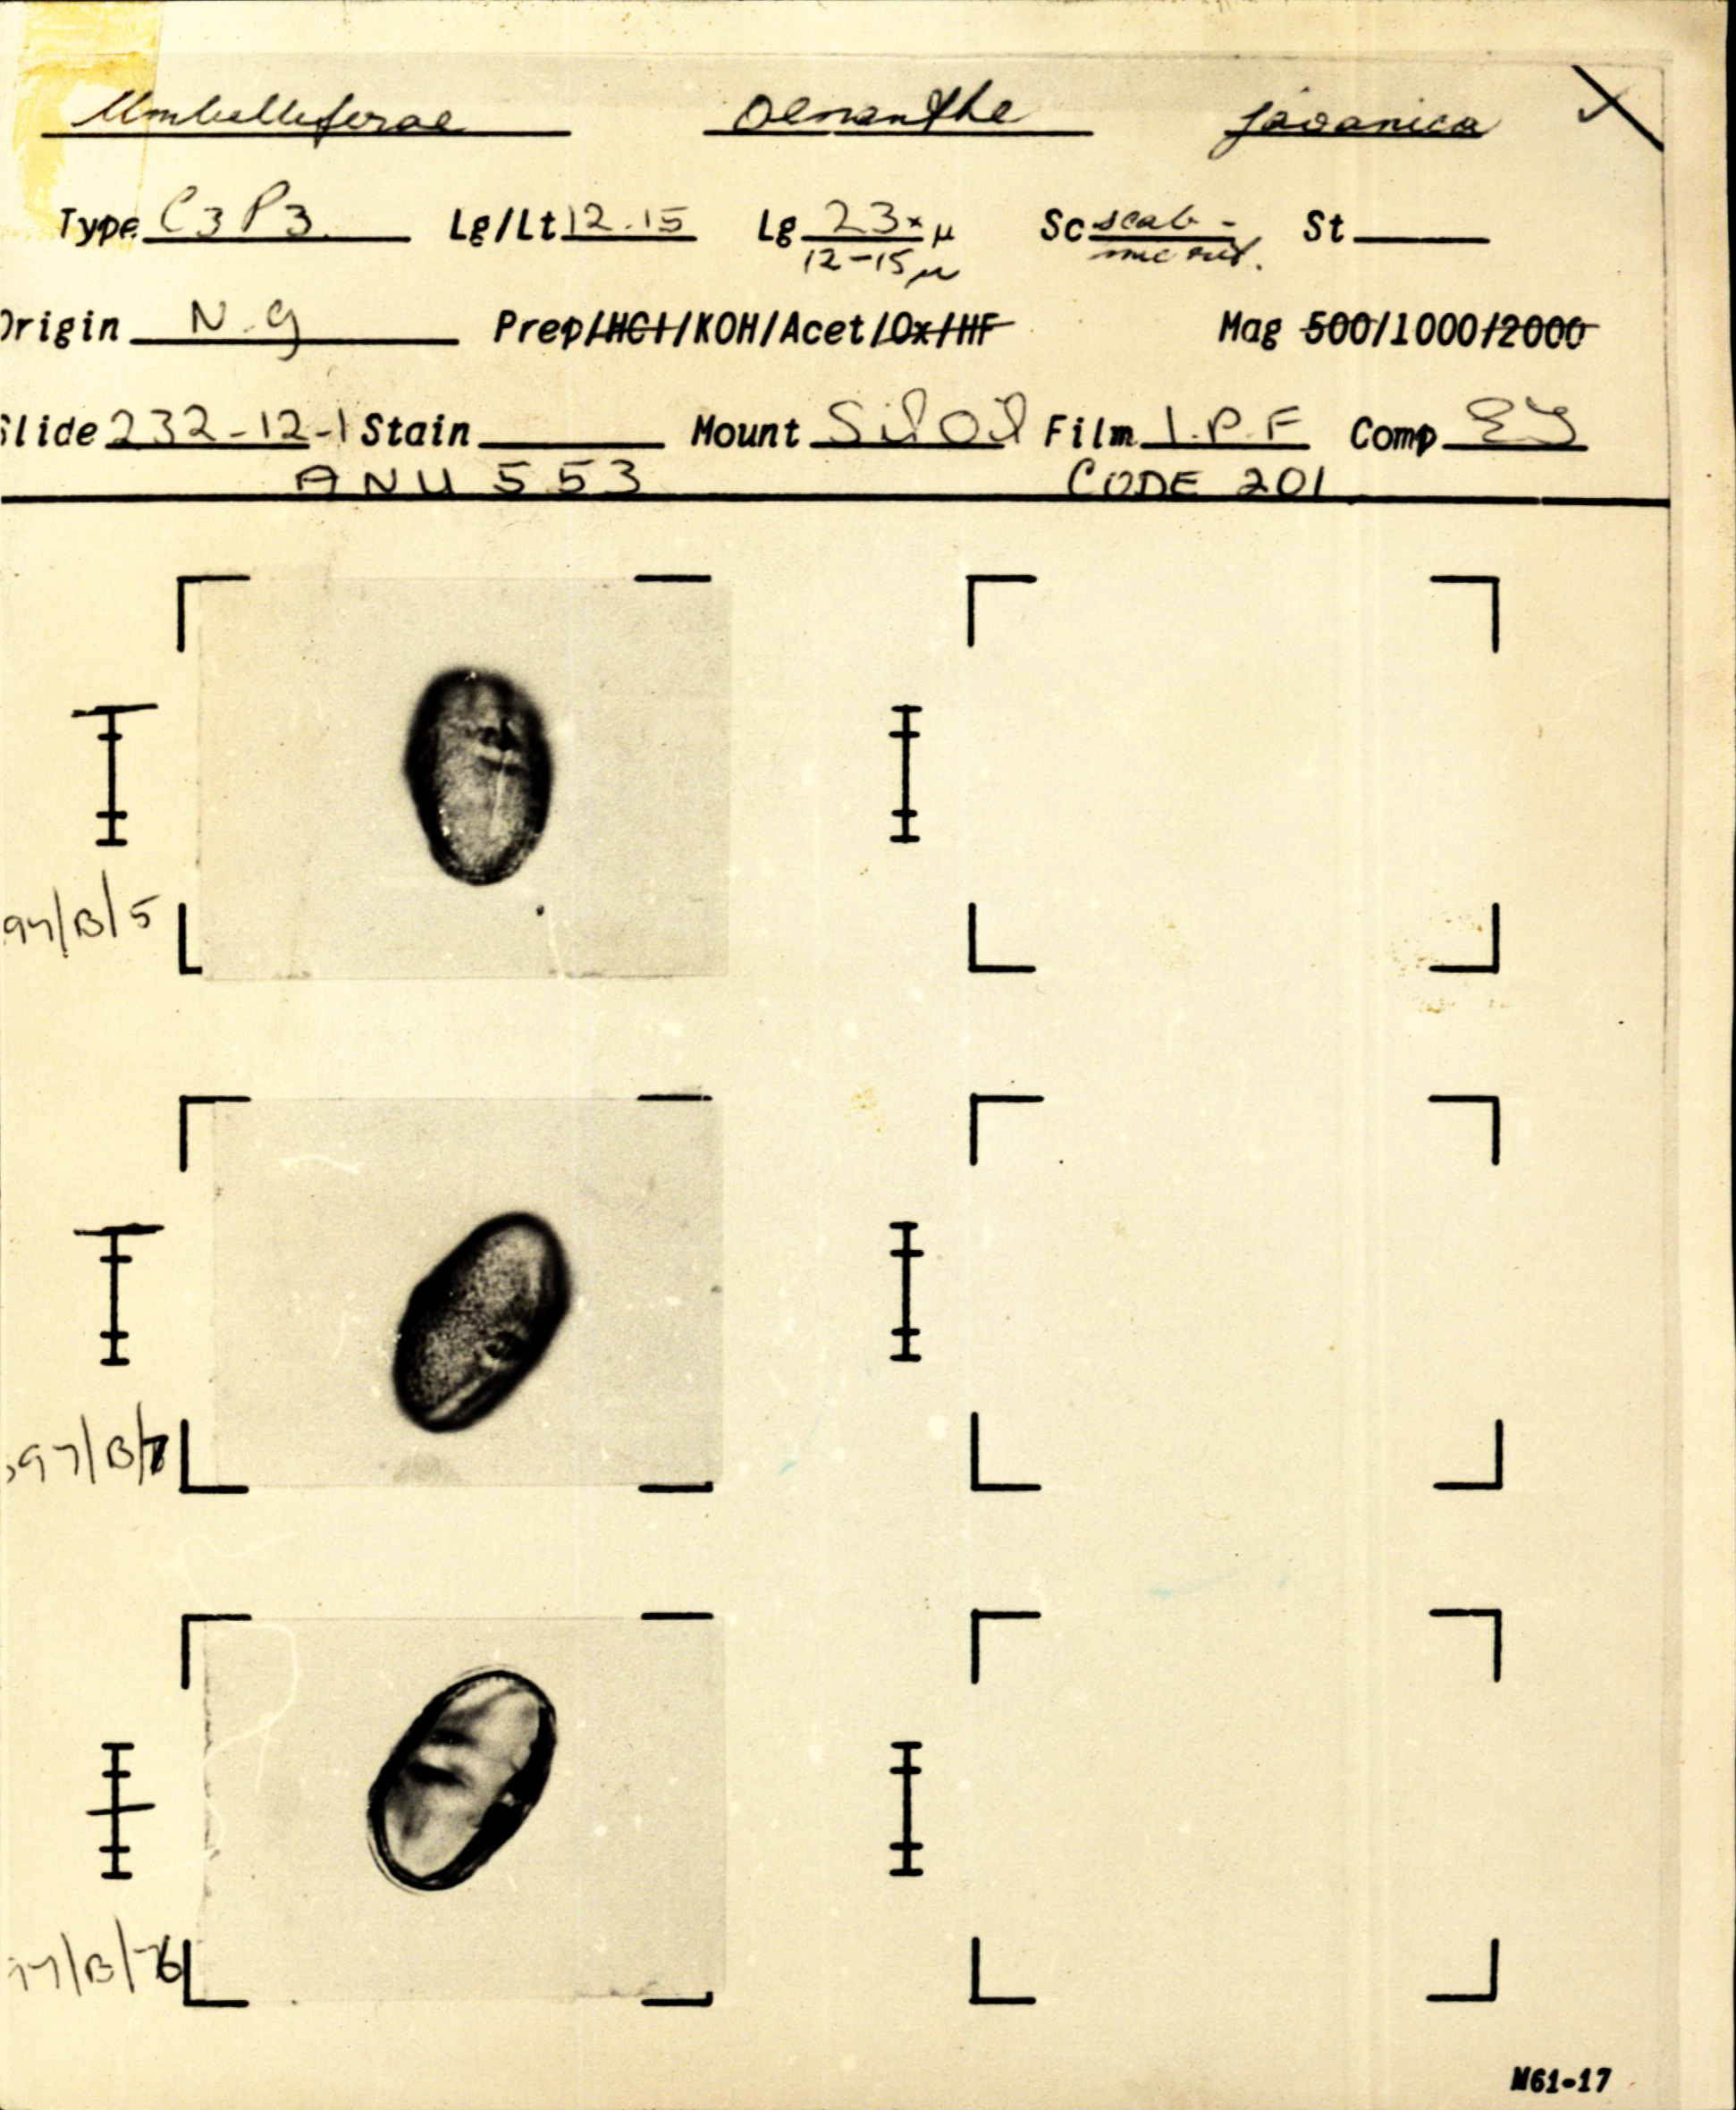 Umbelliferae Oenanthe javanica
Type C3P3 Lg/Lt 12.15 Lg 23 x μ Sc scab- St
12-15 μ
Origin N.G Prep/HCl/KOH/Acet/Ox/HF Mag 500/1000/2000
Slide 232-12-1 Stain Mount Sil Oil Film I.P.F Comp
ANU 553 CODE 201
97/B/5
97/B/
/B/
M61-17